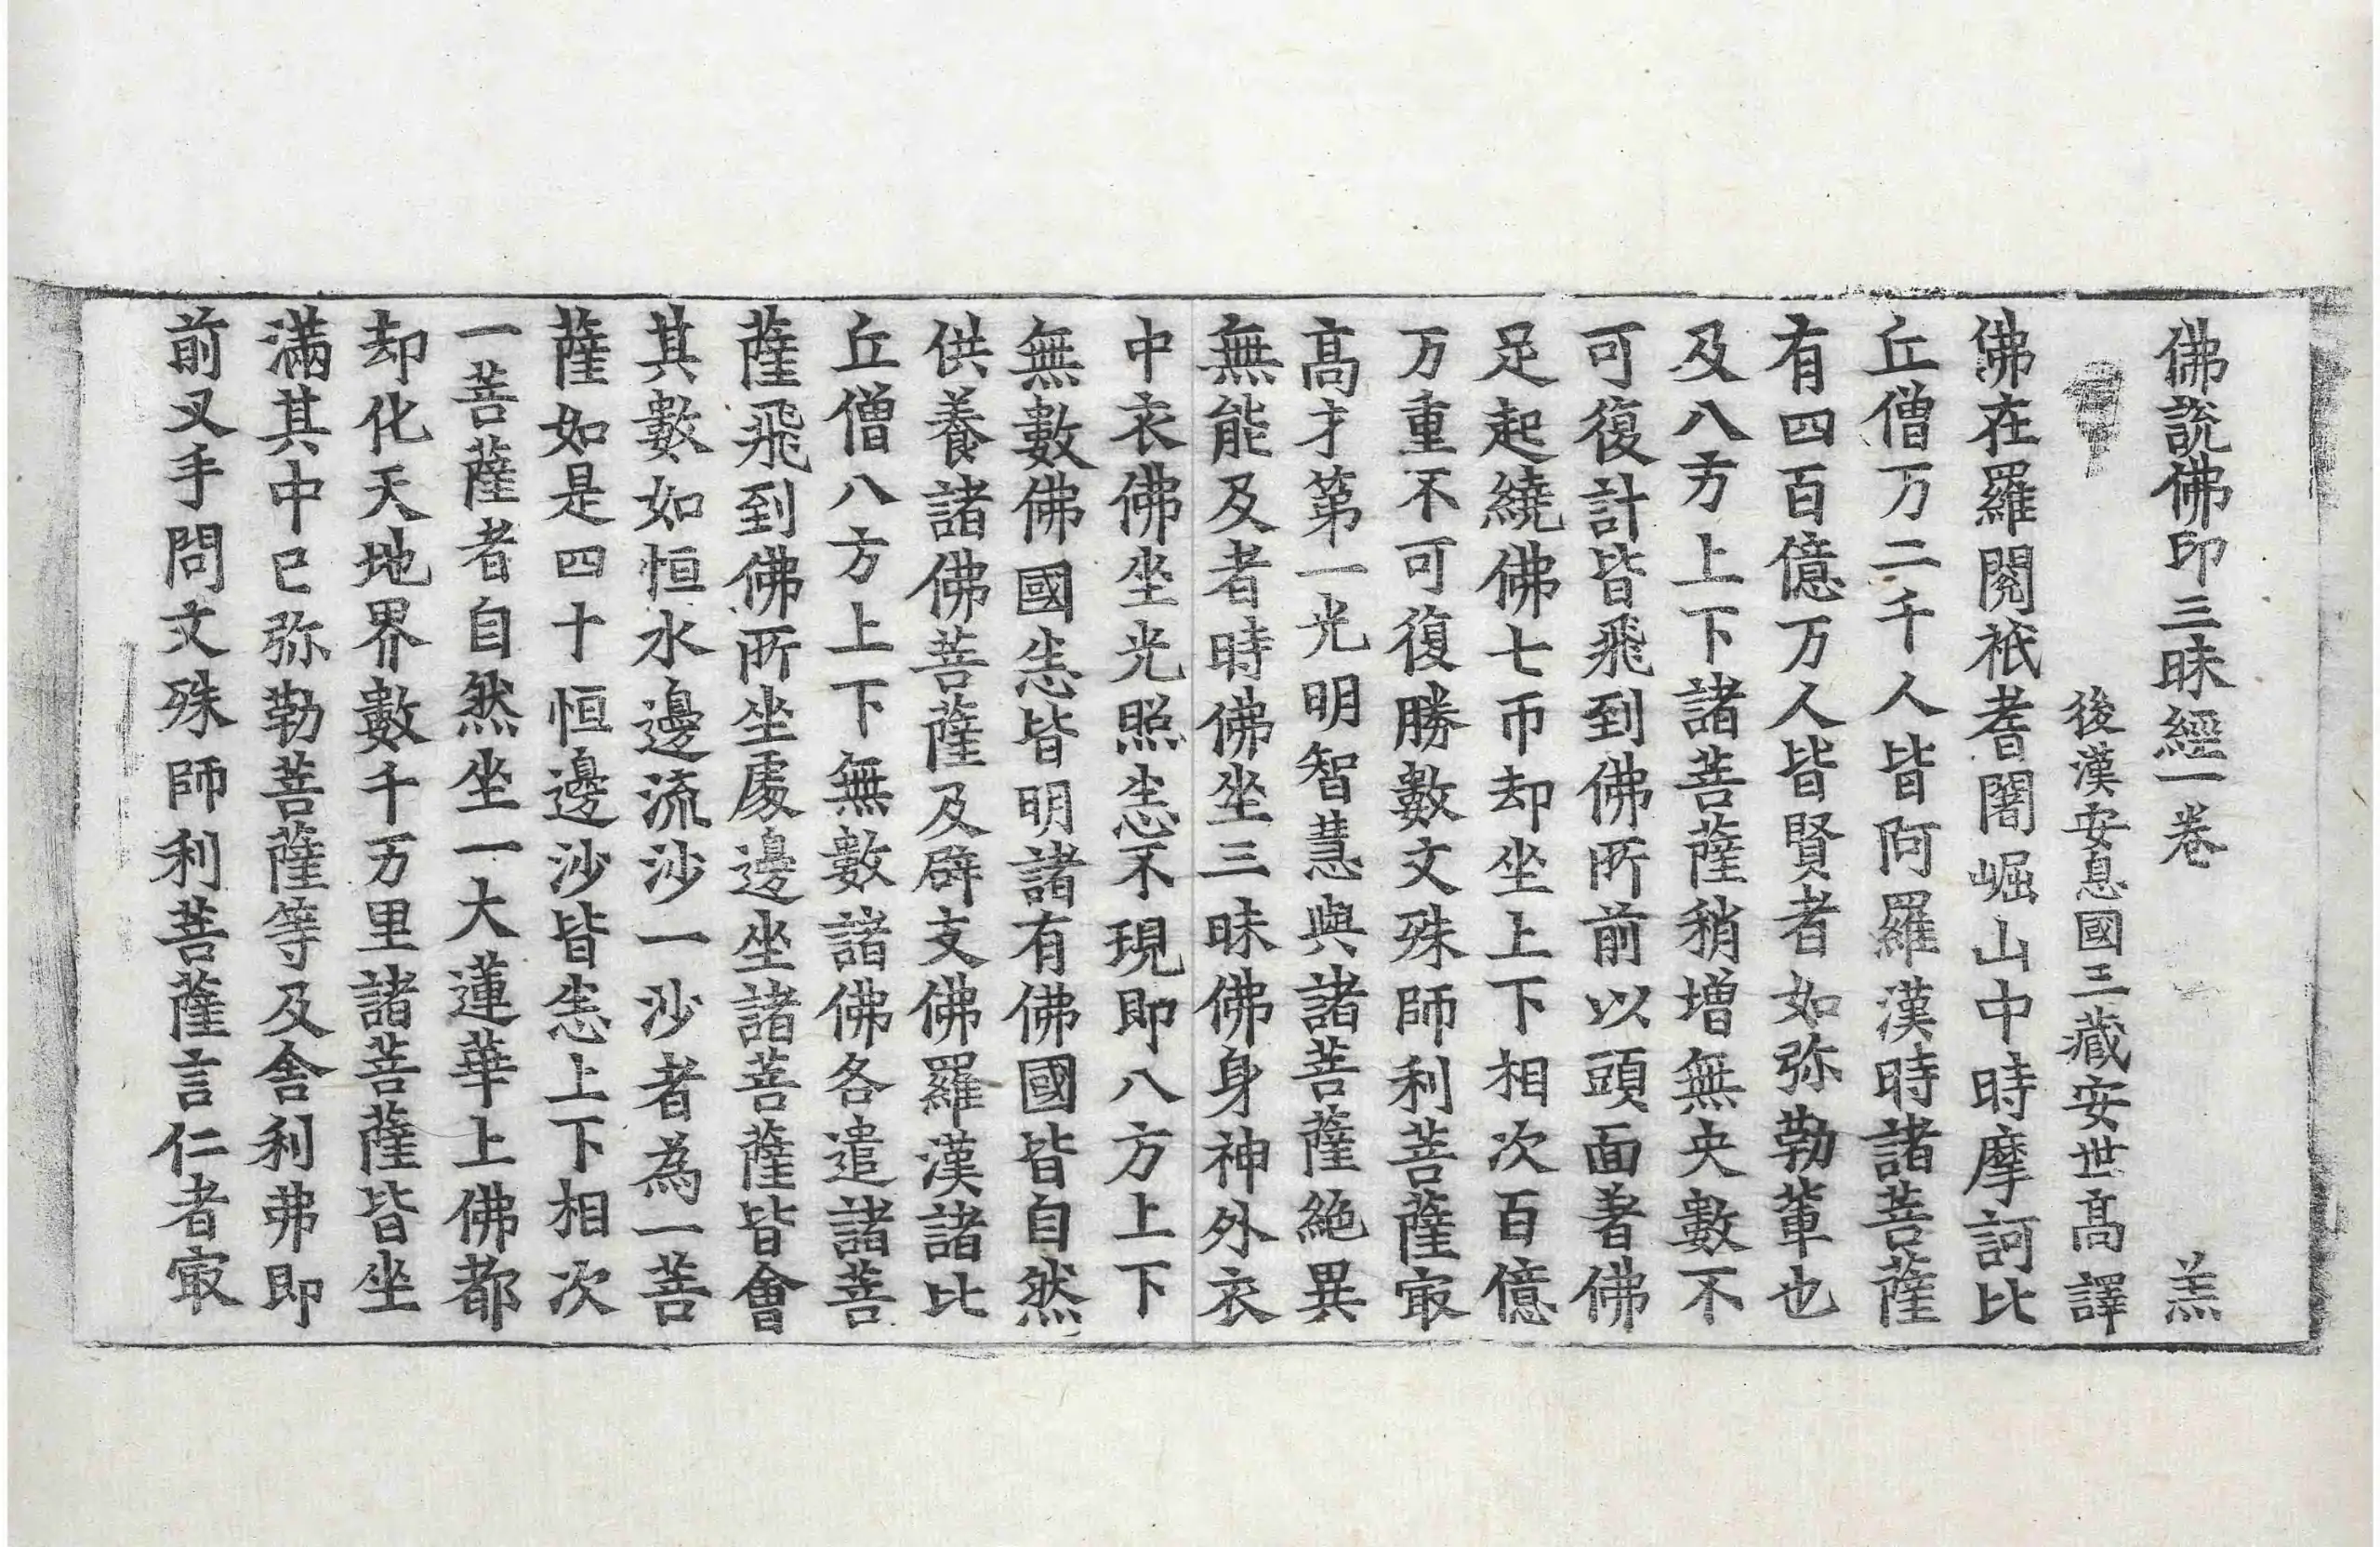 佛說佛印三昧經一卷 羔
後漢安息國三藏安世高譯
佛在羅閱祇耆闍崛山中時摩訶比
丘僧万二千人皆阿羅漢時諸菩薩
有四百億万人皆賢者如弥勒軰也
及八方上下諸菩薩稍增無央數不
可復計皆飛到佛所前以頭面著佛
足起繞佛七帀却坐上下相次百億
万重不可復勝數文殊師利菩薩㝡
高才第一光明智慧與諸菩薩絕異
無能及者時佛坐三昧佛身神外衣
中衣佛坐光照恙不現即八方上下
無數佛國恙皆明諸有佛國皆自然
供養諸佛菩薩及辟支佛羅漢諸比
丘僧八方上下無數諸佛各遣諸菩
薩飛到佛所坐處邊坐諸菩薩皆會
其數如恒水邊流沙一沙者為一菩
薩如是四十恒邊沙皆恙上下相次
一菩薩者自然坐一大蓮華上佛都
却化天地界數千万里諸菩薩皆坐
滿其中已弥勒菩薩等及舍利弗即
前叉手問文殊師利菩薩言仁者㝡